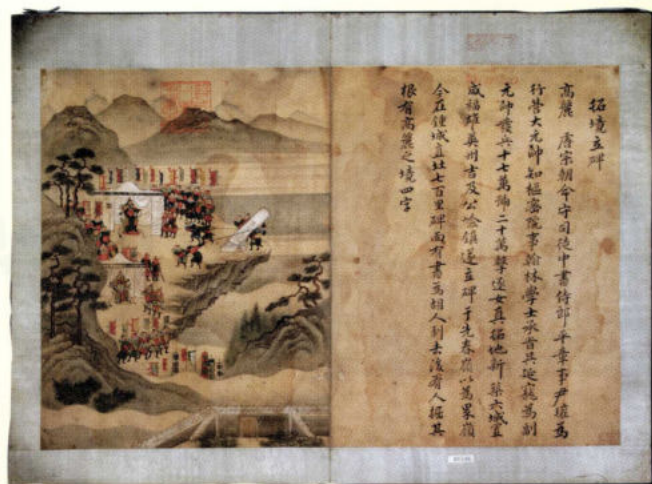 拓境立碑
高麗 睿宗朝命守司徒中書侍郎平章事尹瓘爲
行營大元帥知樞密院事翰林學士承旨吳延寵爲副
元帥發兵十七萬號二十萬擊逐女真拓地新築六城置
咸福雄英州吉及公嶮鎮遂立碑于先春嶺以爲界嶺
今在鍾城直北七百里碑面有書爲胡人剝去後有人掘其
根有高麗之境四字